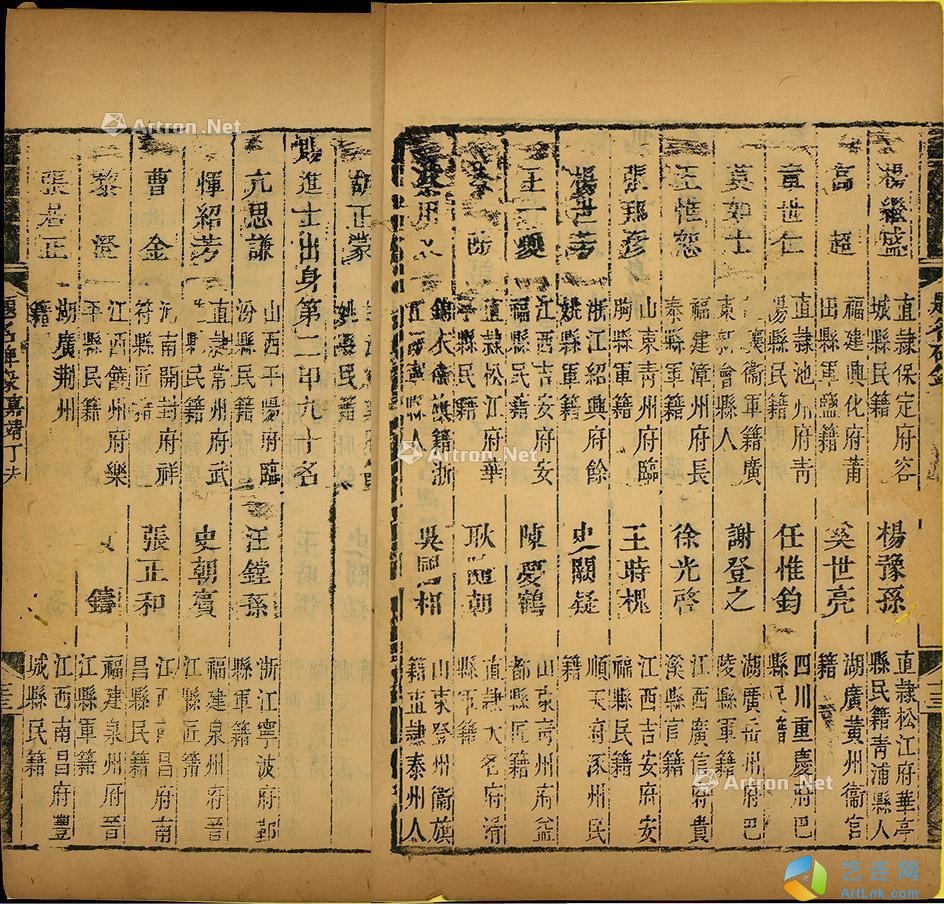 楊繼盛
直隸保定府容
城縣民籍
楊豫孫
直隸松江府華亭
縣民籍青浦縣人
高超
福建興化府莆
田縣軍鹽籍
奚世亮
湖廣黃州衞官
籍
章世仁
直隸池州府青
陽縣民籍
任惟鈞
四川重慶府巴
縣民籍
莫如士
衞軍籍廣
東新會縣人
謝登之
湖廣岳州府巴
陵縣軍籍
王惟恕
福建漳州府長
泰縣軍籍
徐光啓
江西廣信府貴
溪縣官籍
張邦彥
山東青州府臨
朐縣軍籍
王時槐
江西吉安府安
福縣民籍
楊世芳
浙江紹興府餘
姚縣軍籍
史闕疑
順天府涿州民
籍
王一夔
江西吉安府安
福縣民籍
陳愛鶴
山東青州府益
都縣匠籍
直隸松江府華
亭縣民籍
耿隨朝
直隸大名府滑
縣軍籍
蔡用
錦衣衞旗籍浙
縣人
吳國相
山東登州衞旗
籍直隸泰州人
胡正蒙
姚縣民籍
賜進士出身第二甲九十名
亢思謙
山西平陽府臨
汾縣民籍
汪鏜孫
浙江寧波府鄞
縣軍籍
惲紹芳
直隸常州府武
進縣民籍
史朝賓
福建泉州府晉
江縣匠籍
曹金
河南開封府祥
符縣匠籍
張正和
江西南昌府南
昌縣民籍
黎澄
江西饒州府樂
平縣民籍
鑄
福建泉州府晉
江縣軍籍
張居正
湖廣荊州
籍
江西南昌府豐
城縣民籍
題名碑錄嘉靖丁未
Artron.Net
Artron.Net
Artron.Net
艺连网
ArtLnk.com